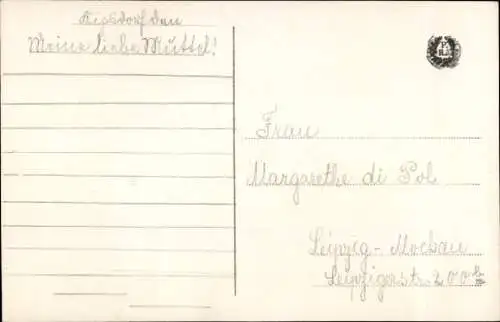 Kipsdorf den
Meine liebe Muttel!
Frau
Margarethe di Pol
Leipzig-Mockau
Leipzigerstr. 200